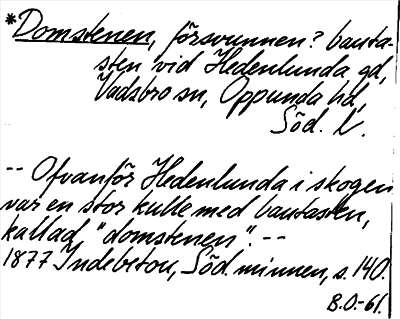 *Domstenen, försvunnen? bauta-
sten vid Hedenlunda gd,
Vadsbro sn, Oppunda hd,
Söd. l.
-- Ofvanför Hedenlunda i skogen
var en stor kulle med bautasten,
kallad "domstenen". --
1877 Indebetou, Söd. minnen, s. 140.
B.O.-61.